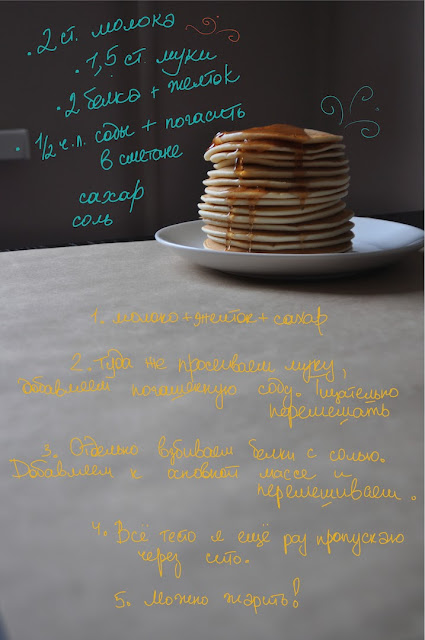 · 2 ст. молока
· 1,5 ст. муки
· 2 белка + желток
· 1/2 ч.л. соды + погасить
в сметане
сахар
соль
1. молоко + желток + сахар
2. туда же просеиваем муку,
добавляем погашенную соду. Тщательно
перемешать
3. Отдельно взбиваем белки с солью.
Добавляем к основной массе и
перемешиваем.
4. Всё тесто я ещё раз пропускаю
через сито.
5. Можно жарить!